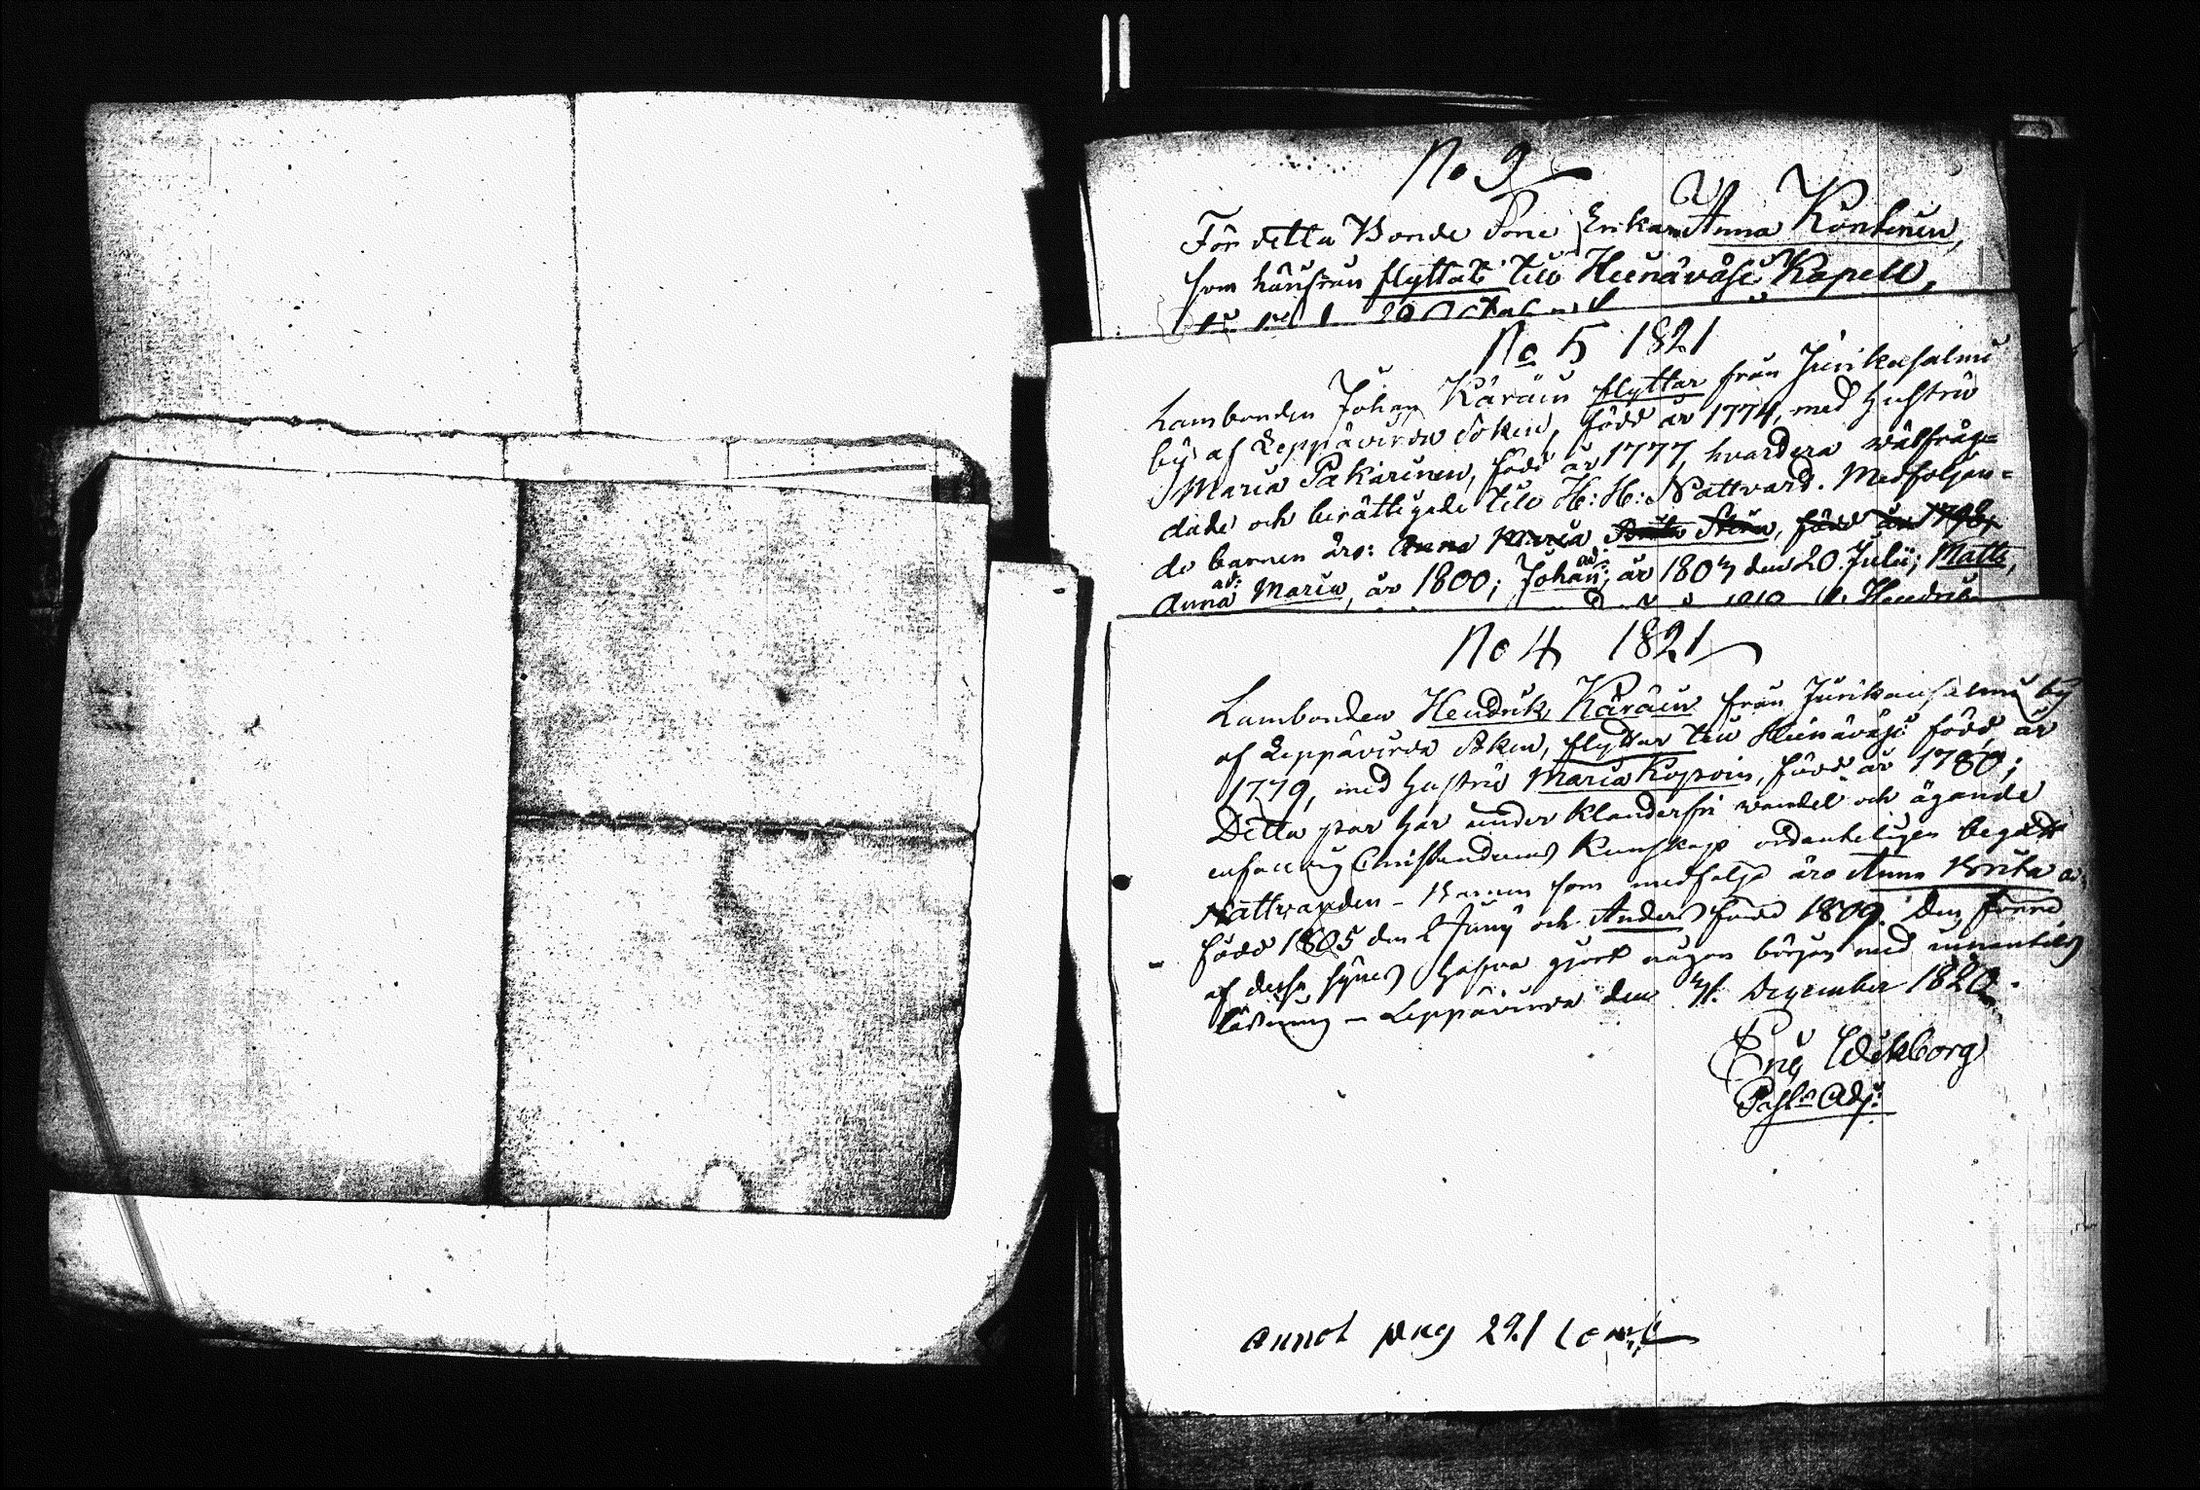 No 9
För detta Bonde Sone Enkan Anna Kontinen,
som härifrån flyttat till Heinäväsi Kapell,
No 5 1821
Lambonden Johan Käräin flyttar från Jurikansalmi
by af Leppävirda Sokn, född år 1774, med hustru
Maria Pakarinen, född år 1777, hvardera wälfräg=
dade och berättigade till H: H: Nattvard. Medföljan=
de barnen äro: Anna Maria Brita Stina, född år 1798,
Anna Maria, år 1800; Johan, år 1803 den 20 Julii; Matts,
Hendrik
No 4 1821
Lambonden Hendrik Käräin från Jurikansalmi by
af Leppävirda Sokn, flyttar till Heinäväsi född år
1779, med hustru Maria Kopoin, född år 1780;
Detta par har under klanderfri wandel och ägande
Christendoms Kunskap ordenteligen begådt
Nattvarden - Barnen som medfölja äro Anna Brita
född 1805 den 2 Juny och Anders född 1809. Den förra
af dessa synes hafva gjort någon början med innantill
läsning - Leppävirda den 31. December 1820.
Eng Wikborg
Pasts Adj:
annot pag 291